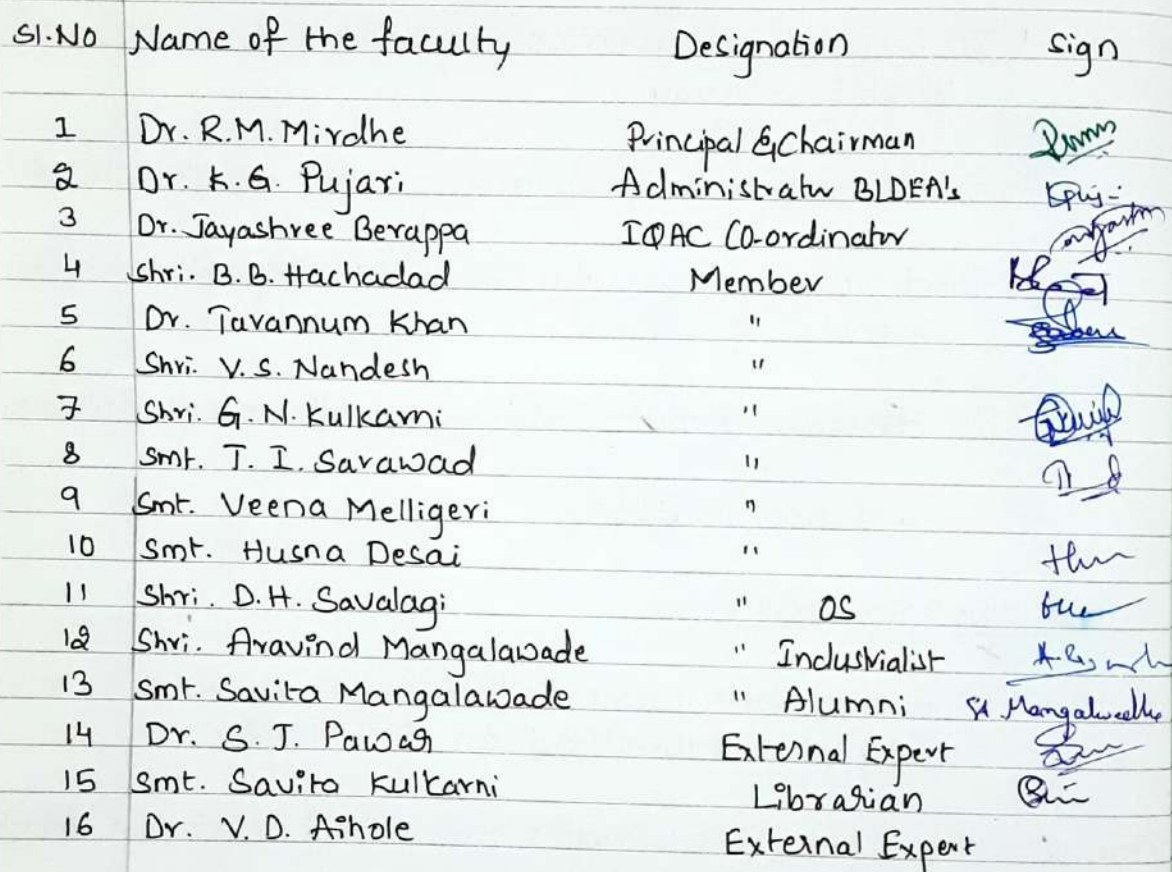 Sl.No Name of the faculty Designation Sign
1 Dr. R.M. Mirdhe Principal & Chairman
2 Dr. K.G. Pujari Administrator BLDEA's
3 Dr. Jayashree Berappa IQAC Co-ordinator
4 Shri. B.B. Hachadad Member
5 Dr. Tavannum Khan "
6 Shri. V.S. Nandesh "
7 Shri. G.N. Kulkarni "
8 Smt. T.I. Savawad "
9 Smt. Veena Melligeri "
10 Smt. Husna Desai "
11 Shri. D.H. Savalagi " OS
12 Shri. Aravind Mangalawade " Industrialist
13 Smt. Savita Mangalawade " Alumni
14 Dr. S.J. Pawar External Expert
15 Smt. Savita Kulkarni Librarian
16 Dr. V.D. Aihole External Expert